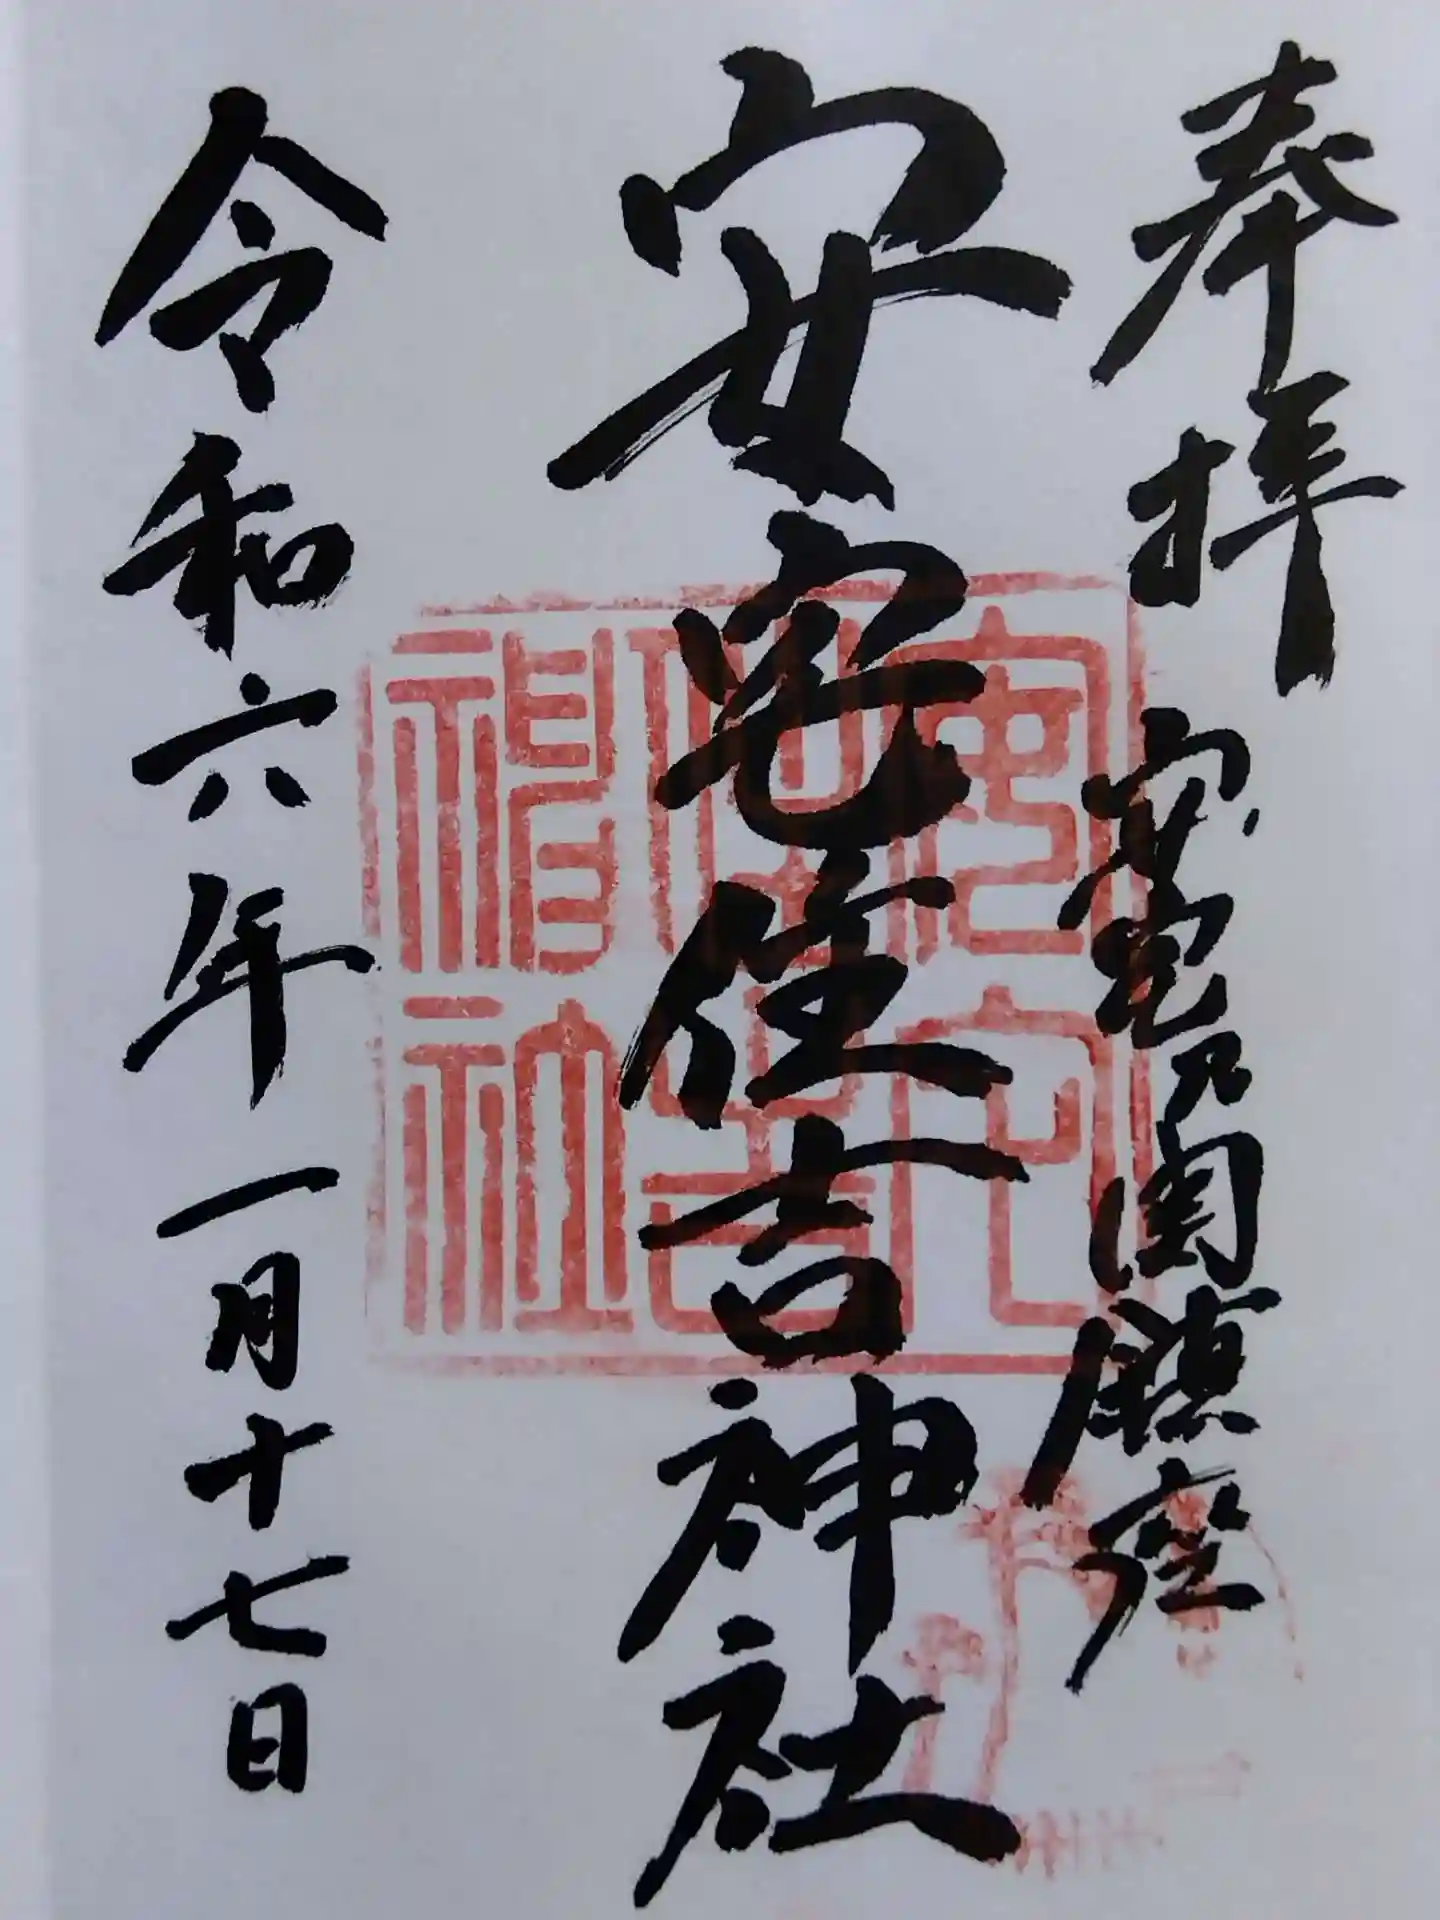 奉拝 安宅乃関鎮座
安宅住吉神社
令和六年一月十七日
安宅
住吉
神社